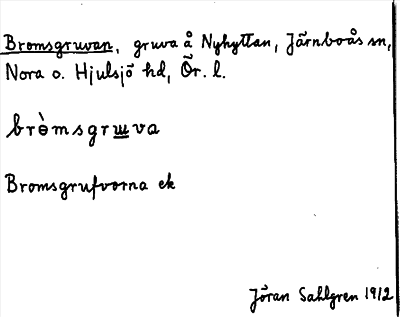 Bromsgruvan, gruva å Nyhyttan, Järnboås sn,
Nora o. Hjulsjö hd, Ör. l.
brèmsgrɯva
Bromsgrufvorna ek
Jöran Sahlgren 1912